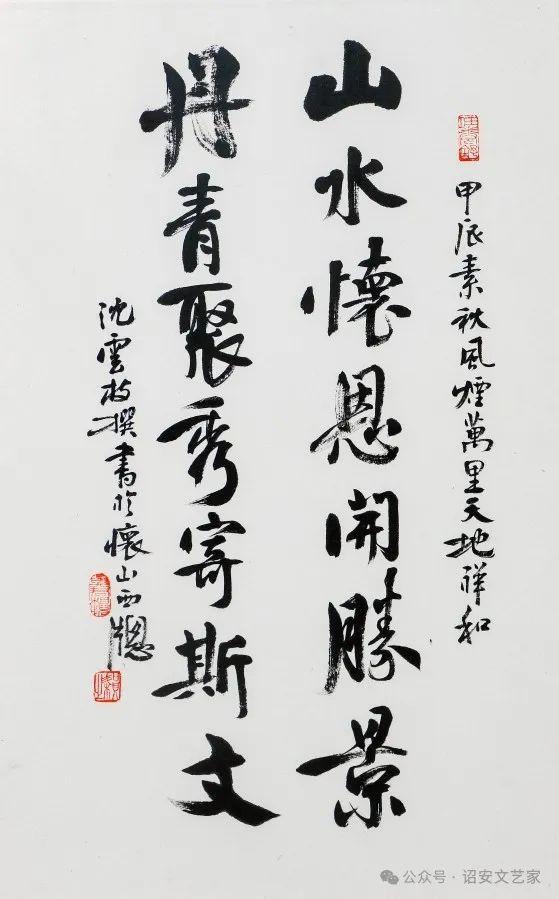 甲辰素秋風煙萬里天地祥和
山水懷恩開勝景
丹青聚秀寄斯文
沈雲枝撰書於懷山西牕
公众号·诏安文艺家